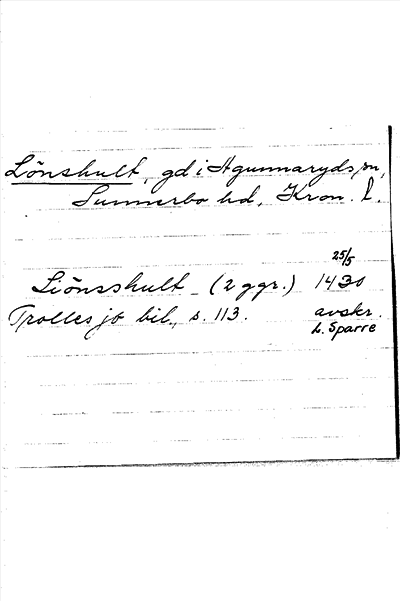 Lönshult, gd i Agunnaryds sn,
Sunnerbo hd, Kron. l.
25/5
Liönsshult - (2 ggr.) 1430
Trolles jb bil., s. 113. avskr.
L. Sparre